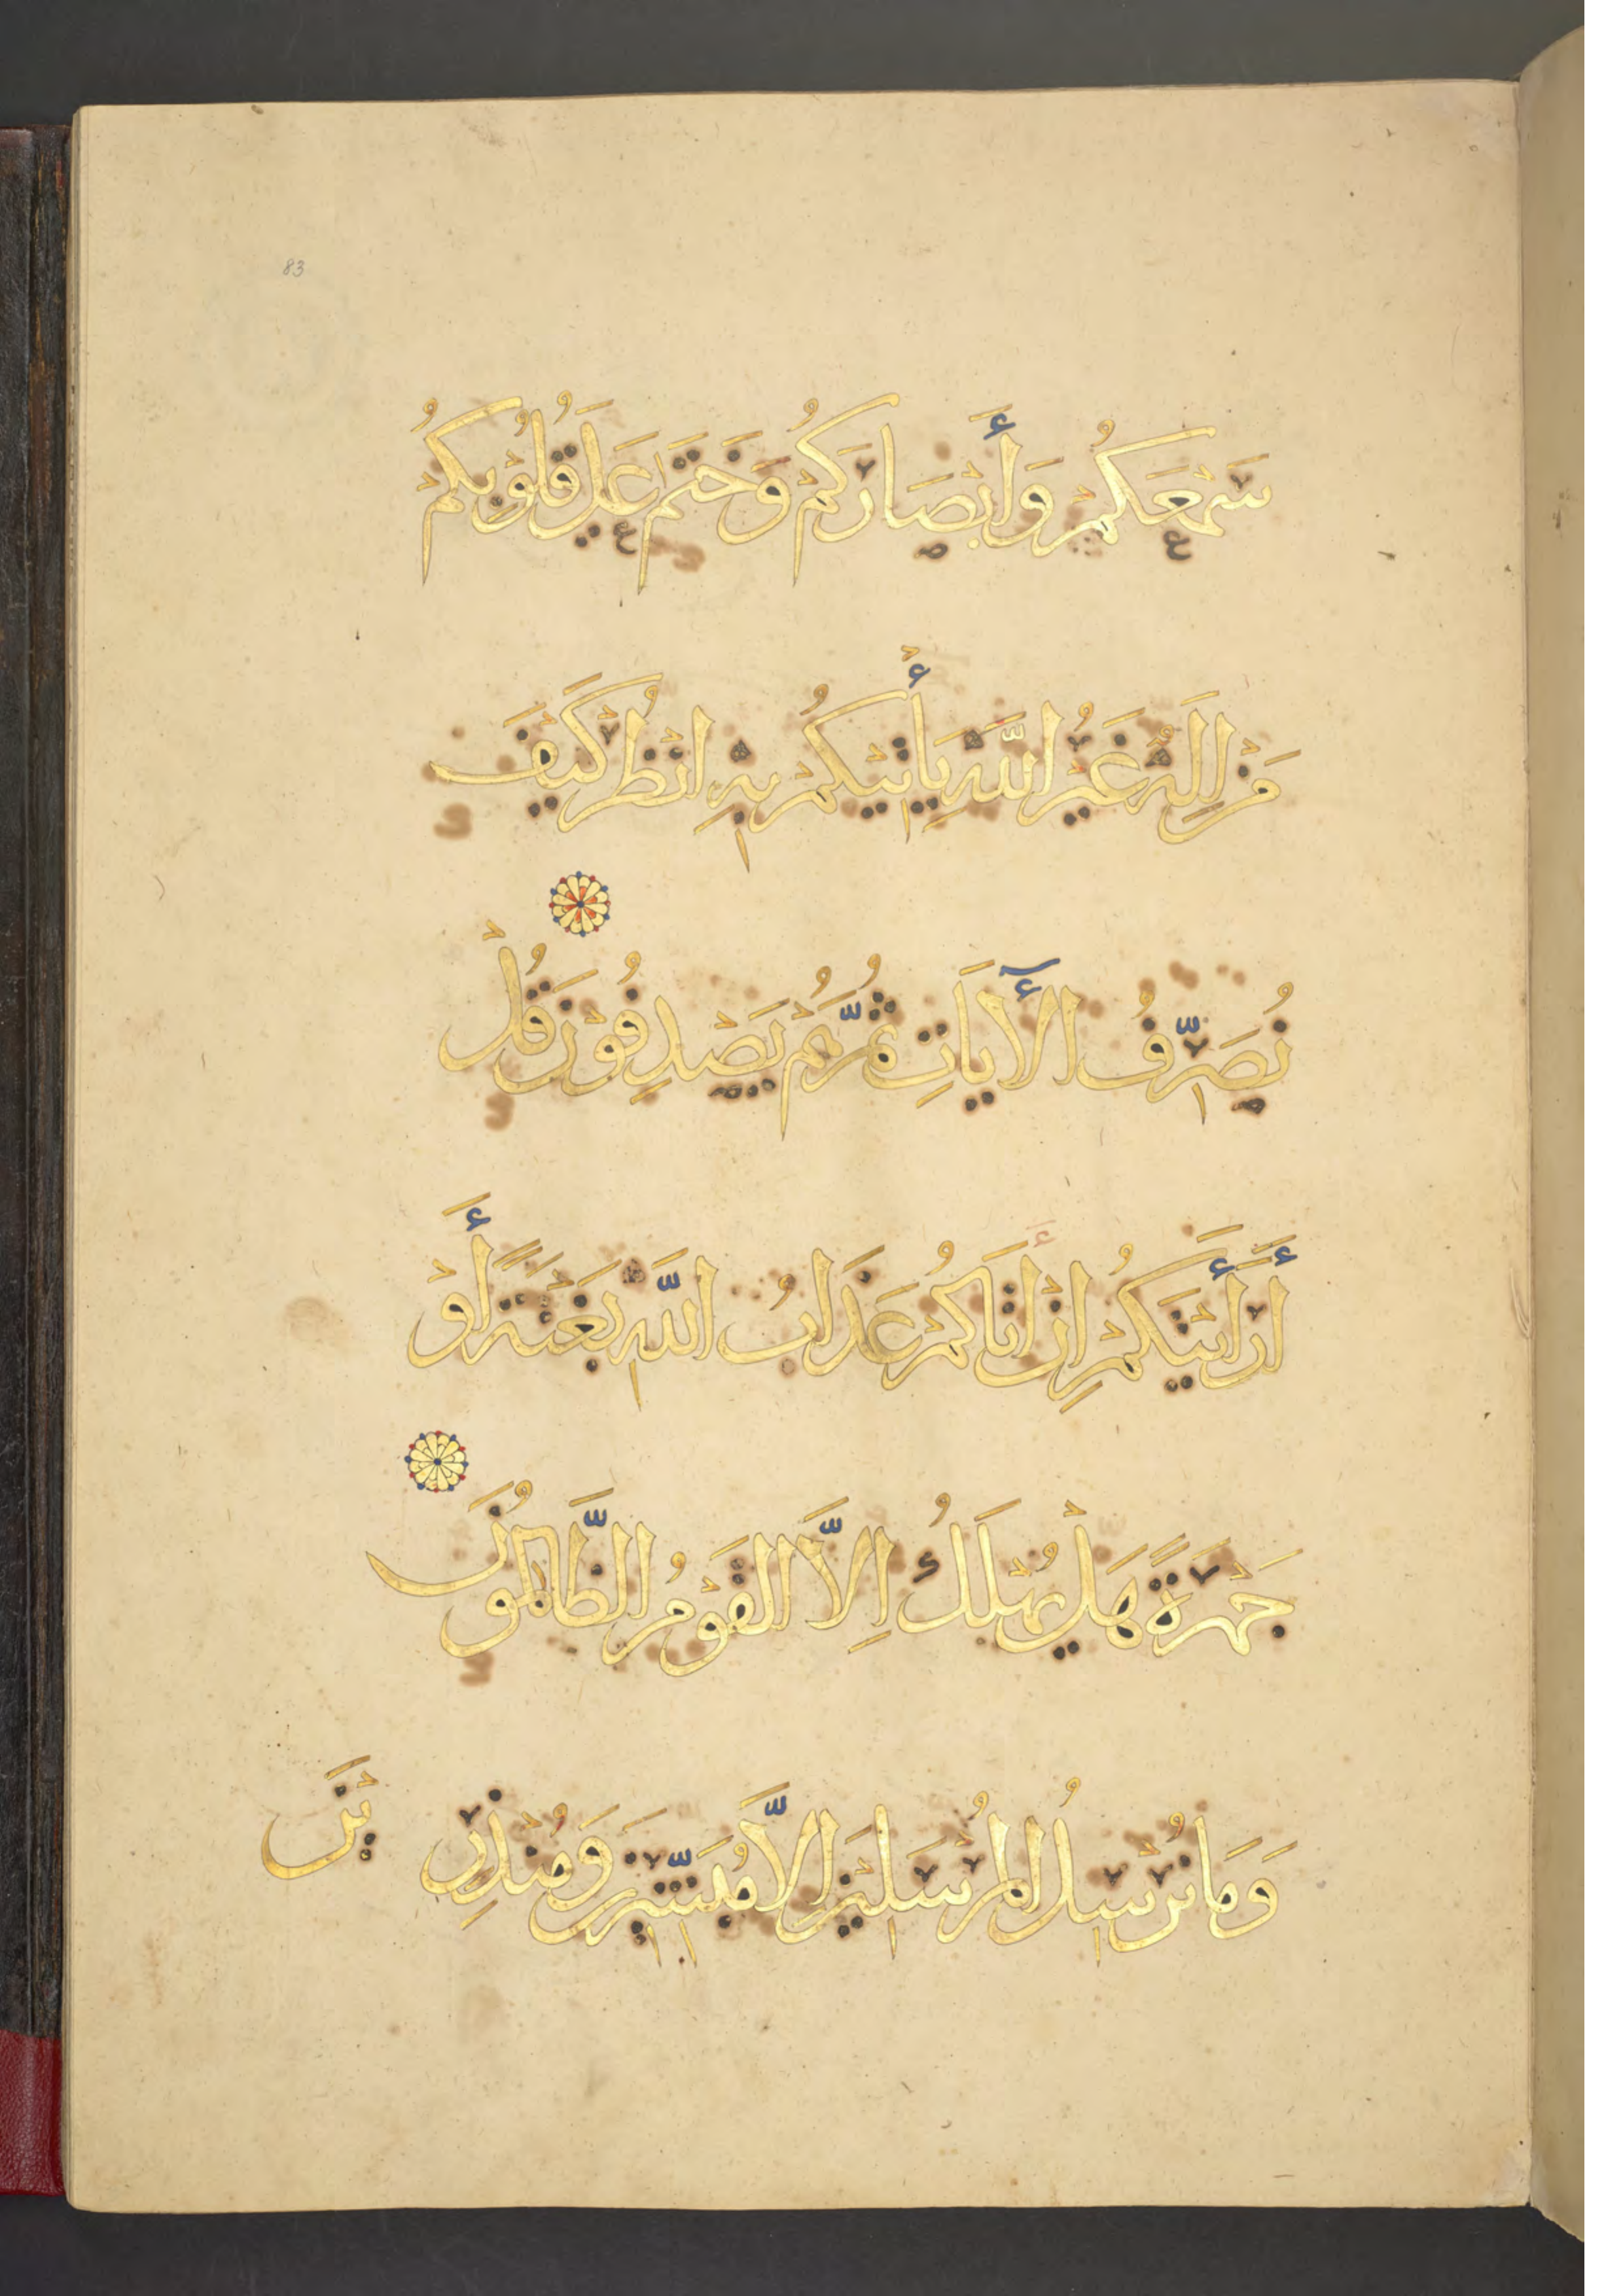 83
سَمْعَكُمْ وَأَبْصَارَكُمْ وَخَتَمَ عَلَىٰ قُلُوْبِكُمْ
مَنْ إِلَهٌ غَيْرُ اللَّهِ يَأْتِيْكُمْ بِهِ انْظُرْ كَيْفَ
نُصَرِّفُ الْأٓيَاتِ ثُمَّ هُمْ يَصْدِفُوْنَ قُلْ
أَرَأَيْتَكُمْ إِنْ أَتَاكُمْ عَذَابُ اللَّهِ بَغْتَةً أَوْ
جَهْرَةً هَلْ يُهْلَكُ إِلَّا الْقَوْمُ الظَّالِمُوْنَ
وَمَا نُرْسِلُ الْمُرْسَلِيْنَ إِلَّا مُبَشِّرِيْنَ وَمُنْذِرِيْنَ